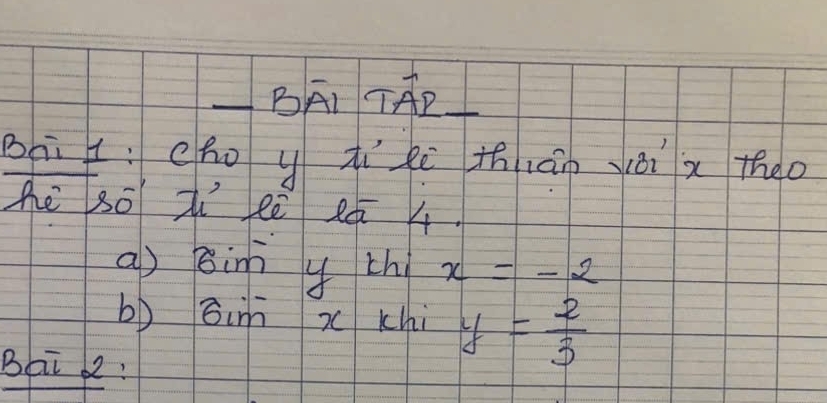 BÀI TẬP
Bài 1: Cho y tỉ lệ thuận với x theo
hệ số tỉ lệ là 4.
a) Tìm y khi x = -2
b) Tìm x khi y = 2/3
Bài 2: